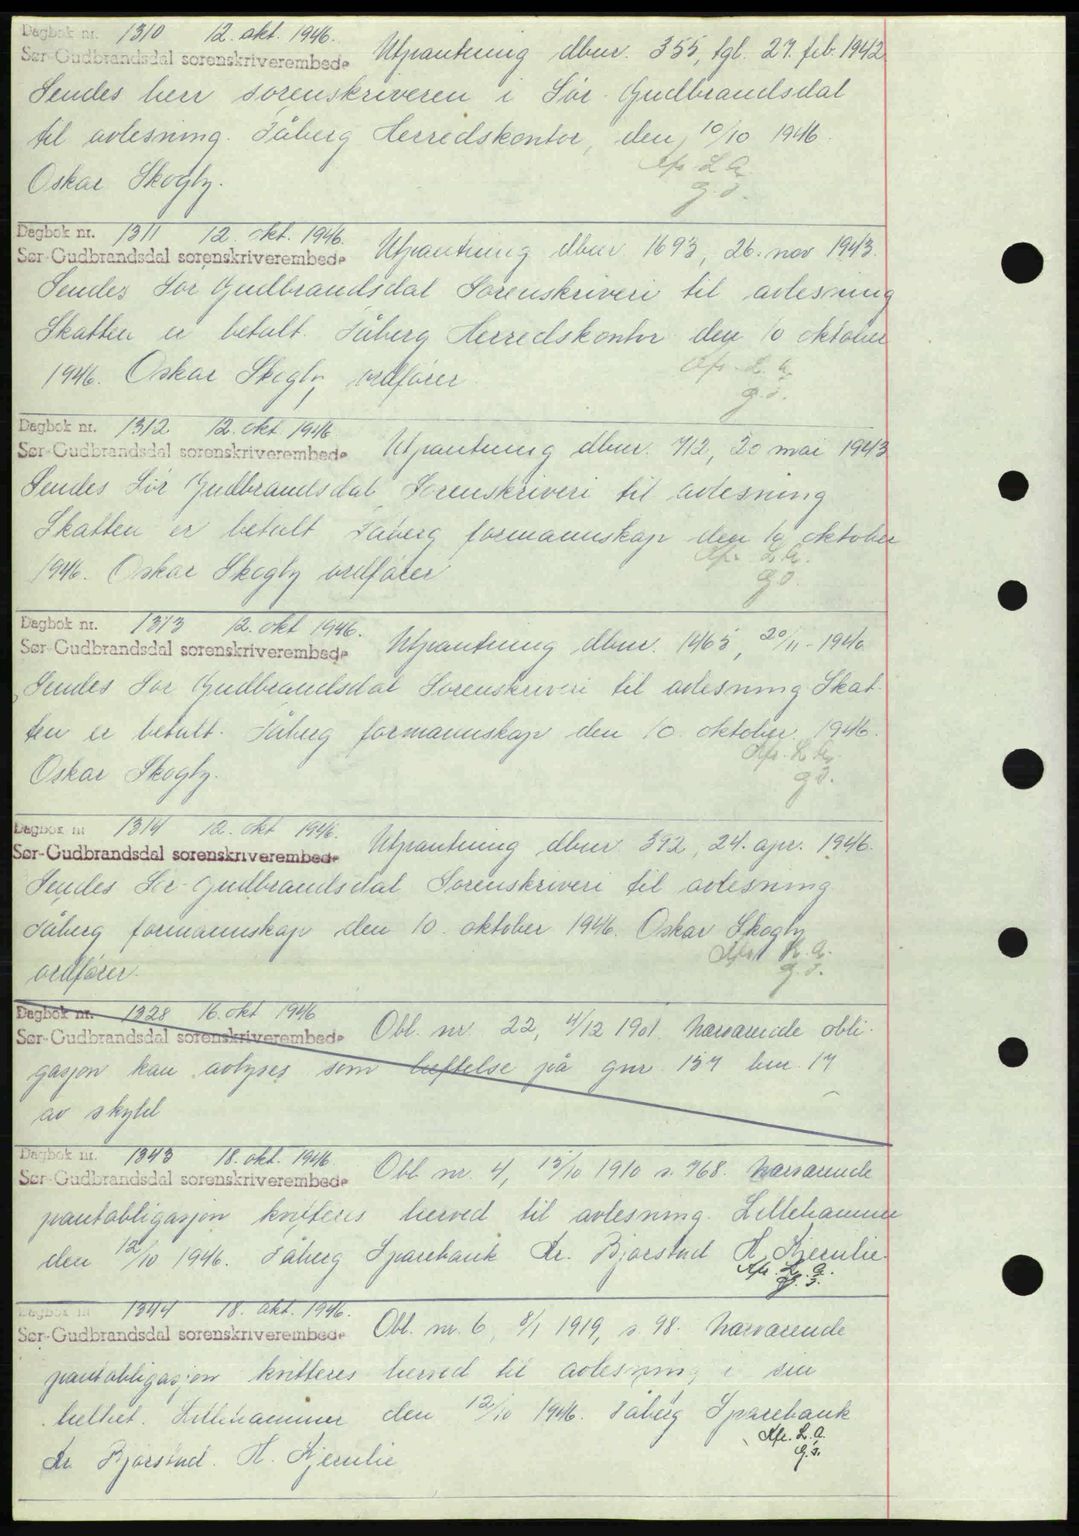 Dagbok nr. 1310 12. okt. 1946.
Sør-Gudbrandsdal sorenskriverembede Utpantning dbnr. 355, tgl. 27. feb. 1942
Sendes herr sorenskriveren i Sør-Gudbrandsdal
til avlesning. Fåberg Herredskontor, den 10/10 1946.
Oskar Skogly.
Kfr. L.A.
G.S.
Dagbok nr. 1311 12. okt. 1946.
Sør-Gudbrandsdal sorenskriverembede Utpantning dbnr 1693, 26. nov 1943.
Sendes Sør Gudbrandsdal Sorenskriveri til avlesning
Skatten er betalt. Fåberg Herredskontor den 10 oktober
1946. Oskar Skogly, ordfører
Kfr. L.A.
G.S.
Dagbok nr. 1312 12. okt 1946
Sør-Gudbrandsdal sorenskriverembede Utpantning dbnr. 712, 20 mai 1943
Sendes Sør Gudbrandsdal Sorenskriveri til avlesning
Skatten er betalt Fåberg formannskap den 10 oktober
1946. Oskar Skogly ordfører
Kfr. L.A.
G.S.
Dagbok nr. 1313 12. okt 1946.
Sør-Gudbrandsdal sorenskriverembede Utpantning dbnr. 1465, 20/11-1946
Sendes Sør Gudbrandsdal Sorenskriveri til avlesning Skat-
ten er betalt. Fåberg formannskap den 10. oktober 1946.
Oskar Skogly.
Kfr. L.A.
G.S.
Dagbok nr 1314 12. okt 1946.
Sør-Gudbrandsdal sorenskriverembede Utpantning dbnr 392, 24. apr. 1946.
Sendes Sør-Gudbrandsdal Sorenskriveri til avlesning
Fåberg formannskap den 10. oktober 1946. Oskar Skogly
ordfører.
Kfr. L.A.
G.S.
Dagbok nr. 1328 16. okt 1946
Sør-Gudbrandsdal sorenskriverembede Obl. nr. 22, 4/12 1901. Nærværende obli-
gasjon kan avlyses som heftelse på gnr. 157 bnr. 17
av skyld
Dagbok nr. 1343 18. okt. 1946
Sør-Gudbrandsdal sorenskriverembede Obl. nr. 4, 15/10 1910 s. 768. Nærværende
pantobligasjon kvitteres herved til avlesning. Lillehammer
den 12/10 1946. Fåberg Sparebank Kr. Bjørstad H. Kjernlie.
Kfr. L.A.
G.S.
Dagbok nr 1344 18. okt. 1946.
Sør-Gudbrandsdal sorenskriverembede Obl. nr. 6, 8/1 1919, s 98. Nærværende
pantobligasjon kvitteres herved til avlesning i sin
helhet. Lillehammer den 12/10 1946. Fåberg Sparebank
Kr. Bjørstad. H. Kjernlie
Kfr. L.A.
G.S.